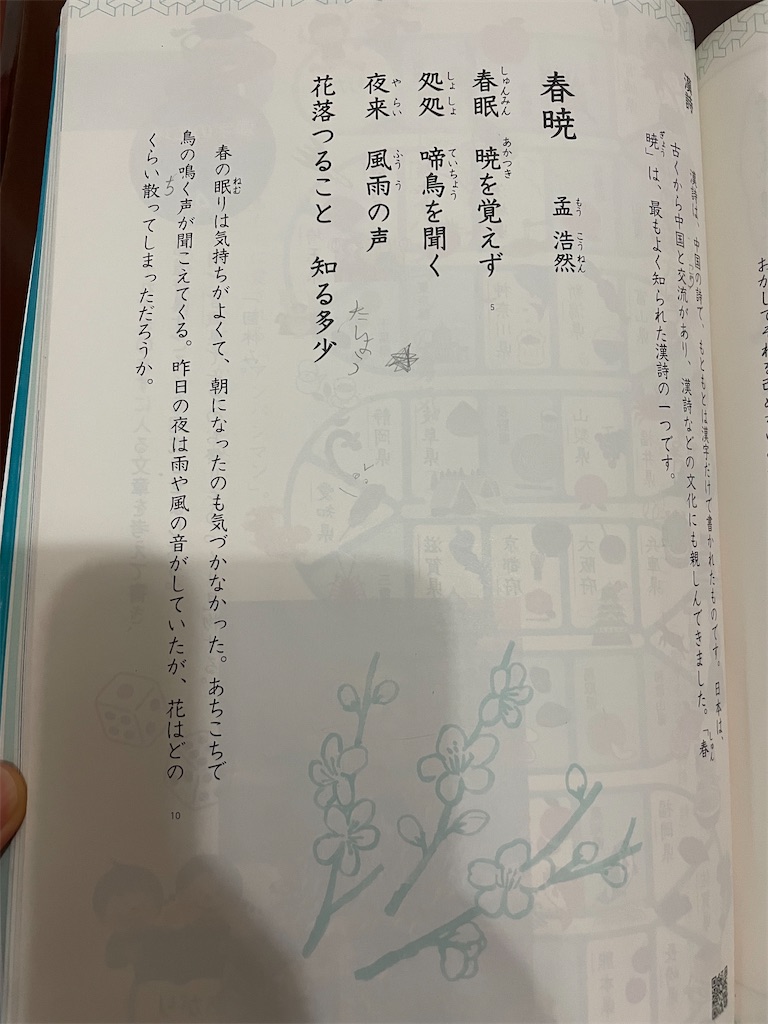 漢詩
漢詩は、中国の詩で、もともとは漢字だけで書かれたものです。日本は、
古くから中国と交流があり、漢詩などの文化にも親しんできました。「春
暁」は、最もよく知られた漢詩の一つです。
春暁
孟浩然
春眠　暁を覚えず
処処　啼鳥を聞く
夜来　風雨の声
花落つること　知る多少
たしょう
春の眠りは気持ちがよくて、朝になったのも気づかなかった。あちこちで
鳥の鳴く声が聞こえてくる。昨日の夜は雨や風の音がしていたが、花はどの
くらい散ってしまっただろうか。
ち
5
10